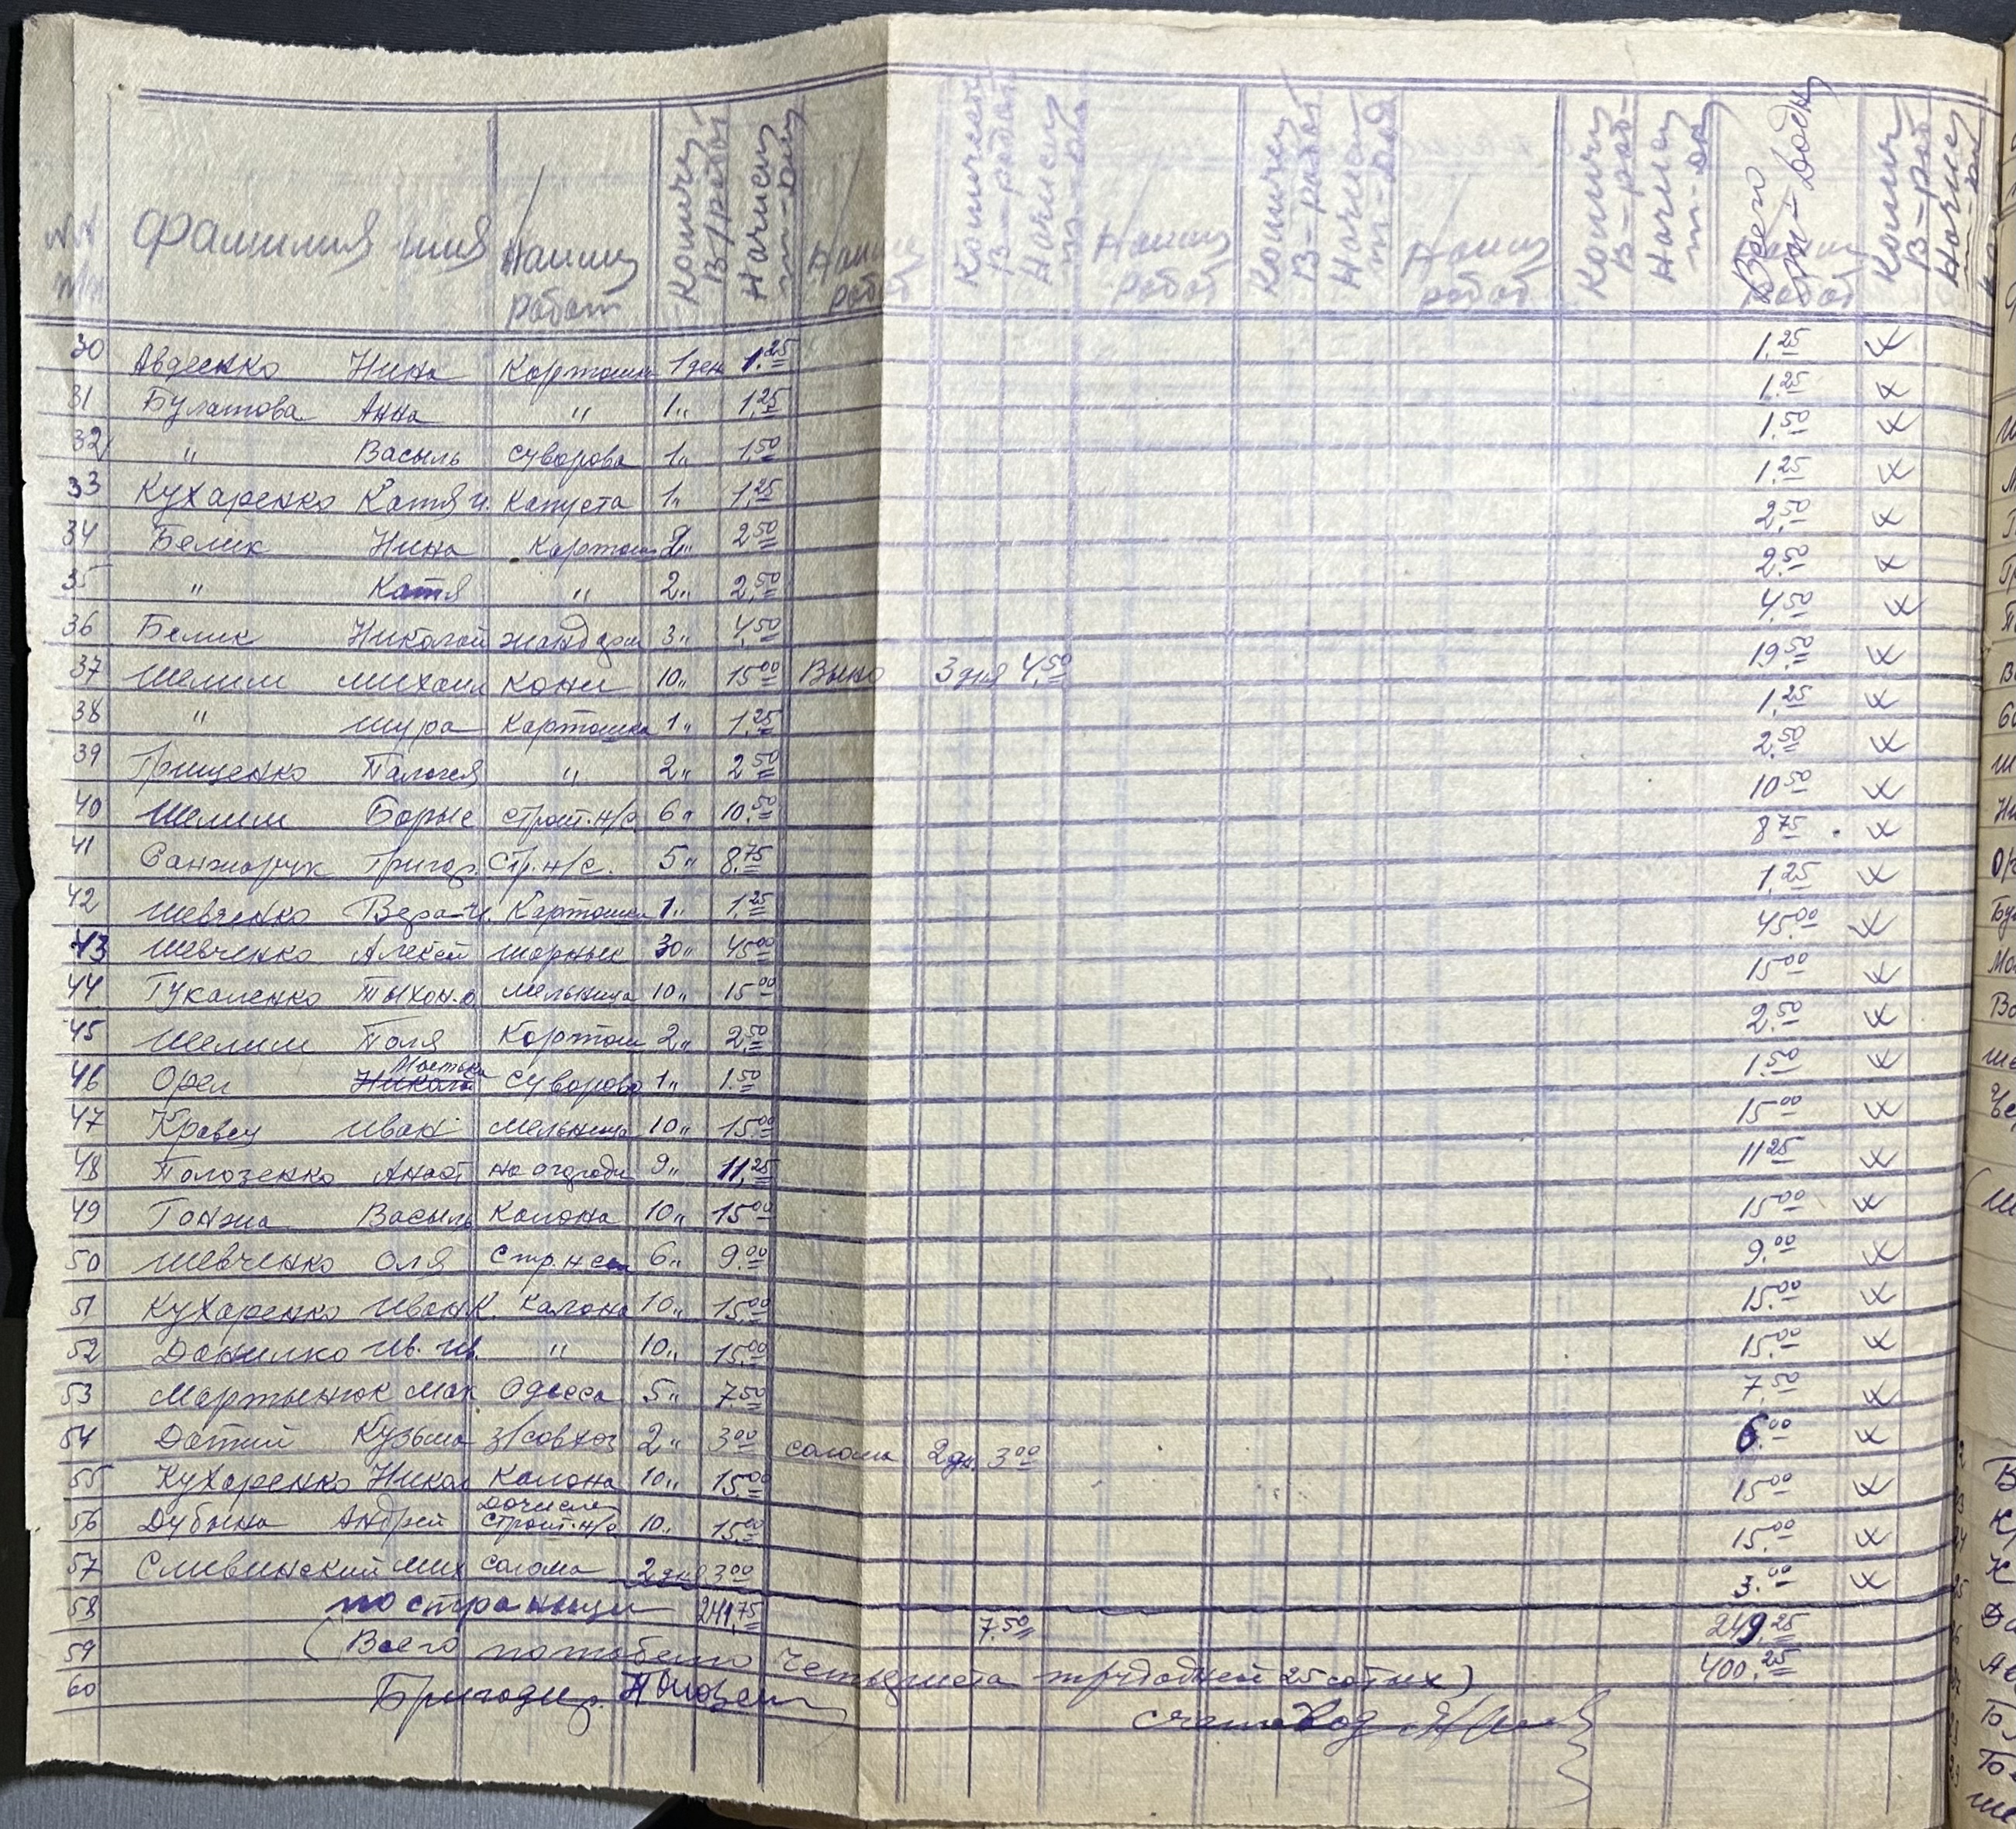 NN п/п Фамилия имя Наимен работ Колич В/работ Начислен т-дни Наим работ Количест В-работ Начислен т-дни Наимен работ Количес В-работ Начислен т-дней Наимен работ Количес В-работ Начислен т-дн Всего т-додни Колич В-работ Начис т-дн
30 Авдеенко Нина Картошка 1 ден 1.25 1.25
31 Булатова Анна " 1" 1.25 1.25
32 " Васыль Суворова 1" 1.50 1.50
33 Кухаренко Катя И. Капуста 1" 1.25 1.25
34 Белик Нина Картош 2" 2.50 2.50
35 " Катя " 2" 2.50 2.50
36 Белик Николай 3" 4.50 4.50
37 Шелим Михаил Кони 10" 15.00 3 дня 4.50 19.50
38 " Шура Картошка 1" 1.25 1.25
39 Грищенко Палагея " 2" 2.50 2.50
40 Шелим Борыс строит.н/с 6" 10.50 10.50
41 Санжарчук Григор. Стр.н/с. 5" 8.75 8.75
42 Шевченко Вера И. Картошка 1" 1.25 1.25
43 Шевченко Алексей шорнык 30" 45.00 45.00
44 Гукаленко Тыхон.а Мельница 10" 15.00 15.00
45 Шелим Поля Картош 2" 2.50 2.50
46 Орел Суворова 1" 1.50 1.50
47 Кравец Иван Мельница 10" 15.00 15.00
48 Полозенко Анаст на огороди 9" 11.25 11.25
49 Гонжа Васыль Калона 10" 15.00 15.00
50 Шевченко Оля Стр.н сел 6" 9.00 9.00
51 Кухаренко Иван К. Калона 10" 15.00 15.00
52 Данилко Ив. Ив. " 10" 15.00 15.00
53 Мартынюк Мак Одесса 5" 7.50 7.50
54 Датий Кузьма з/совхоз 2" 3.00 солома 2 дн. 3.00 6.00
55 Кухаренко Никол Калона 10" 15.00 15.00
56 Дубына Андрей Дочислен строит.н/с 10" 15.00 15.00
57 Сливинский Мих солома 2 дня 3.00 3.00
58 по страныци 241,75 7.50 249.25
59 (Всего по табелю Четыриста трудодней 25 сотых) 400.25
60 Бригадир.
счетовод